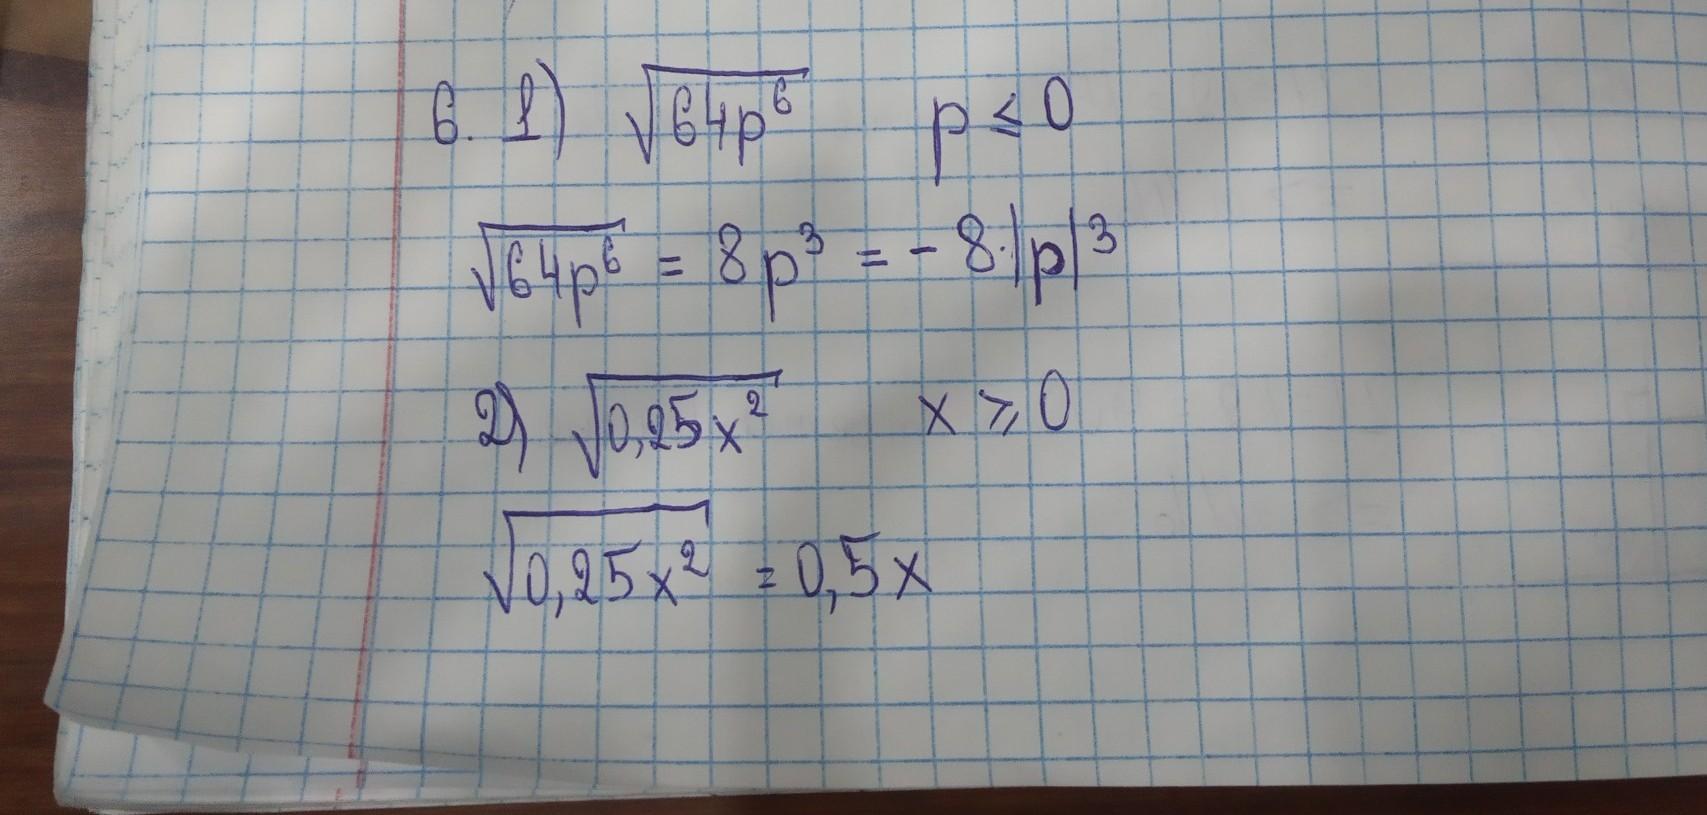 6. 1) √64p⁶ p ≤ 0
√64p⁶ = 8p³ = - 8·|p|³
2) √0,25x² x ⩾ 0
√0,25x² = 0,5x